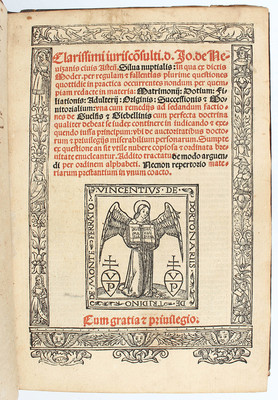 Clarissimi iuriscōsulti. d. Jo. de Ne
uizanis ciuis Asteñ. Silua nuptialis: in qua ex dictis
Moder. per regulam & fallentias plurime questiones
quottidie in practica occurrentes nondum per quem
piam redacte in materia: Matrimonij: Dotium: Fi
liationis: Adulterij: Originis: Successionis & Mo
nitorialium: vna cum remedijs ad sedandum factio
nes de Guelfis & Giebellinis cum perfecta doctrina
qualiter debeat iudex continere in iudicando & exe
quendo iussa principum: vbi de auctoritatibus docto
rum & priuilegijs miserabilium personarum. Sumpto
ex questione an sit vtile nubere copiosa & ordinata bre
uitate enucleantur. Addito tractatu de modo arguen
di per ordinem alphabeti. Necnon repertorio mate
riarum prestantium in vnum coacto.
VINCENTIUS DE
PORTONARIIS
DE TRIDINO
DE MONTE FERRATO
V P
V P
Cum gratia & priuilegio.